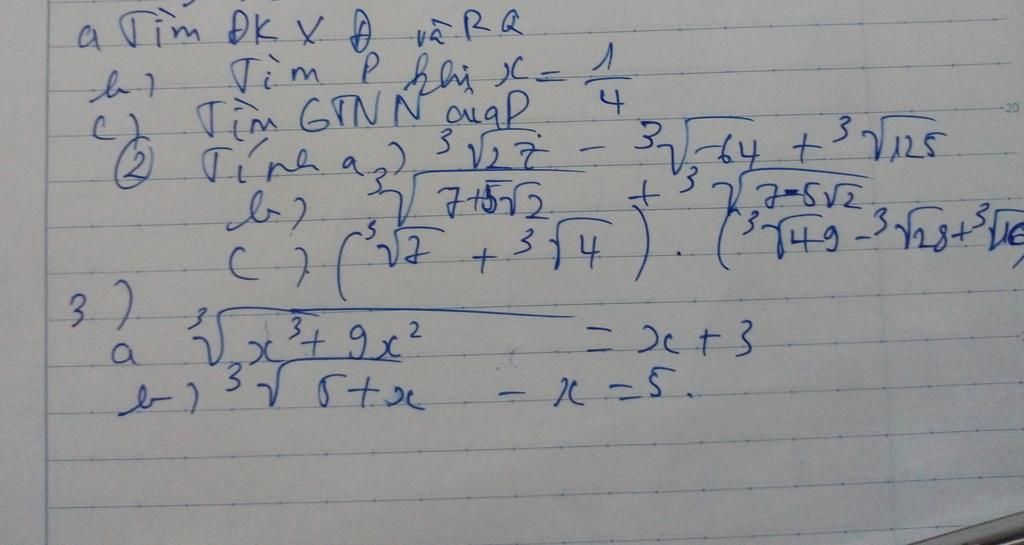 a Tìm ĐKXĐ và RQ
b) Tìm P khi x = 1/4
c) Tìm GTNN của P
② Tính a) ³√27 - ³√-64 + ³√125
b) ³√7+5√2 + ³√7-5√2
c) (³√7 + ³√4) . (³√49 - ³√28 + ³√16)
3)
a ³√x³ + 9x² = x + 3
b) ³√5+x - x = 5.